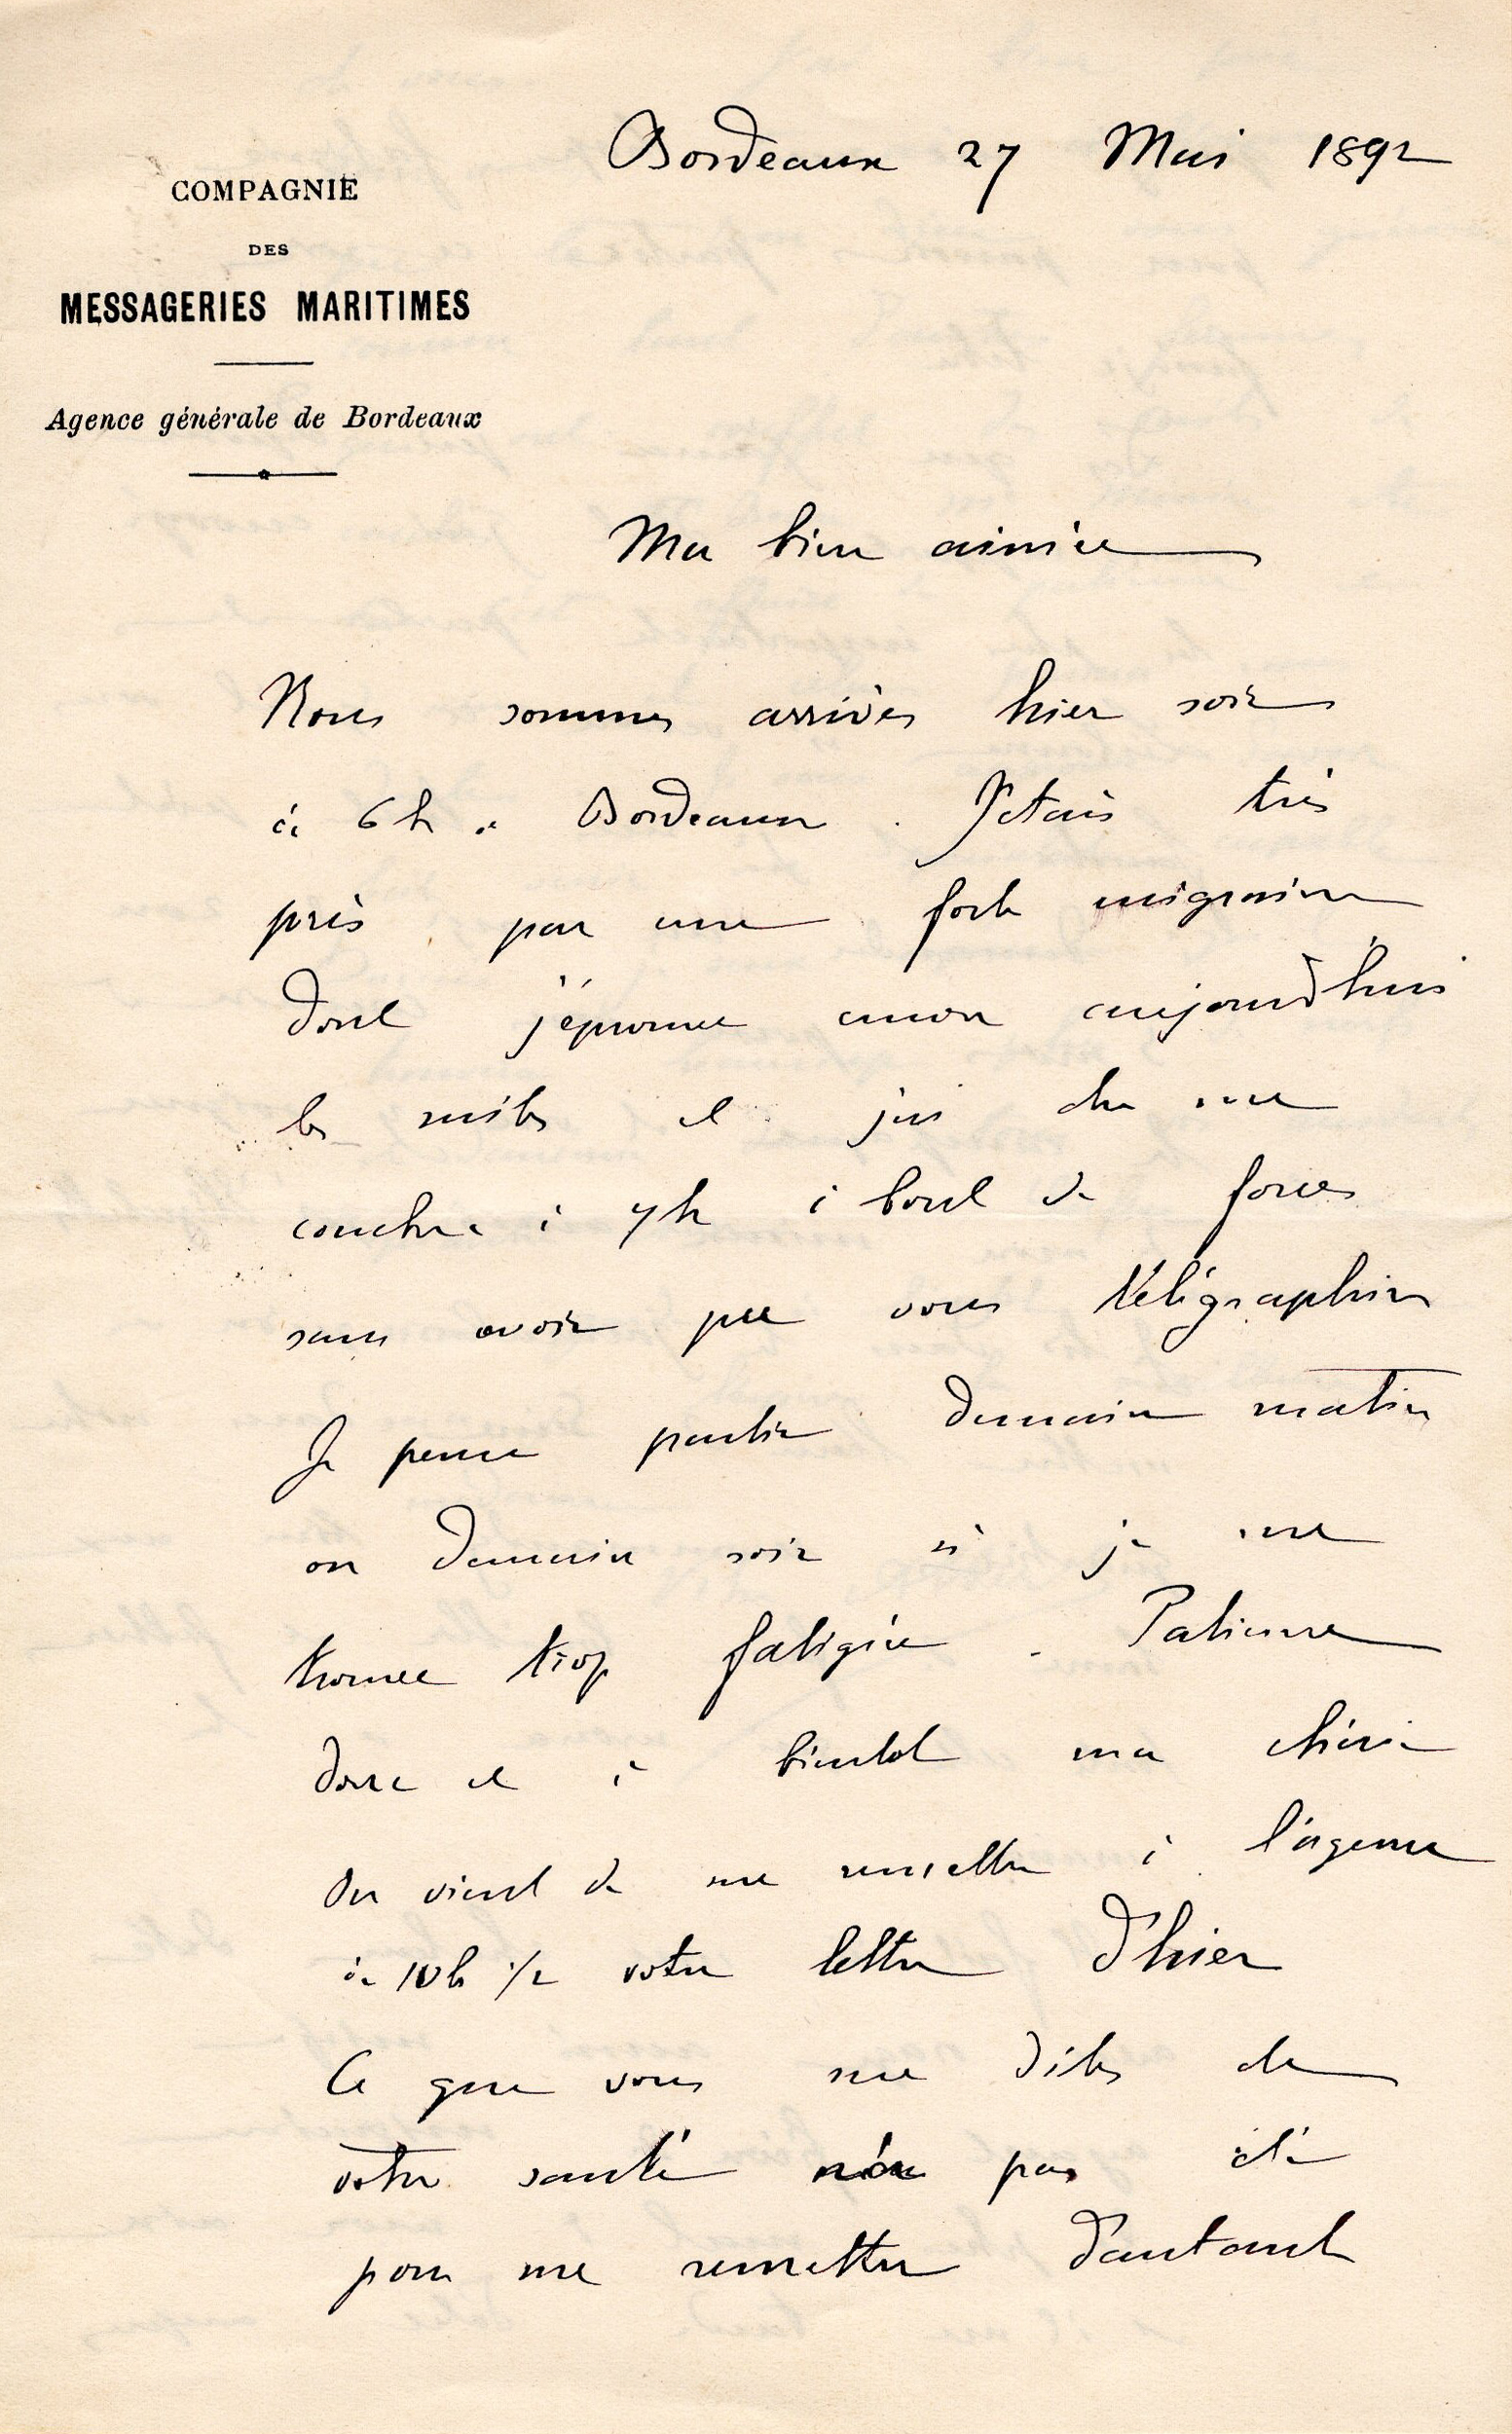 Bordeaux 27 Mai 1892
COMPAGNIE
DES
MESSAGERIES MARITIMES
Agence générale de Bordeaux
Ma bien aimée
Nous sommes arrivés hier soir
à 6h à Bordeaux. J'étais très
pris par une forte migraine
dont j'éprouve encore aujourd'hui
les suites et j'ai dû me
coucher à 7h à bout de forces
sans avoir pu vous télégraphier
Je pense partir demain matin
ou demain soir si je me
trouve trop fatiguée. Patience
donc et à bientot ma chérie
On vient de me remettre à l'agence
à 10h 1/2 votre lettre d'hier
Ce que vous me dites de
votre santé n'a pas été
pour me remettre d'autant